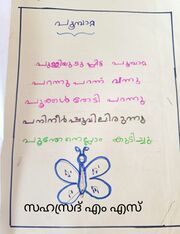 പൂമ്പാറ്റ
പുള്ളിയുടുപ്പിട്ട പൂമ്പാറ്റ
പറന്നു പറന്ന് വന്നു
പൂക്കൾ തേടി പറന്നു
പനിനീർ പൂവിലിരുന്നു
പൂന്തേനെല്ലാം കുടിച്ചു
സഹസ്രദ് എം എസ്